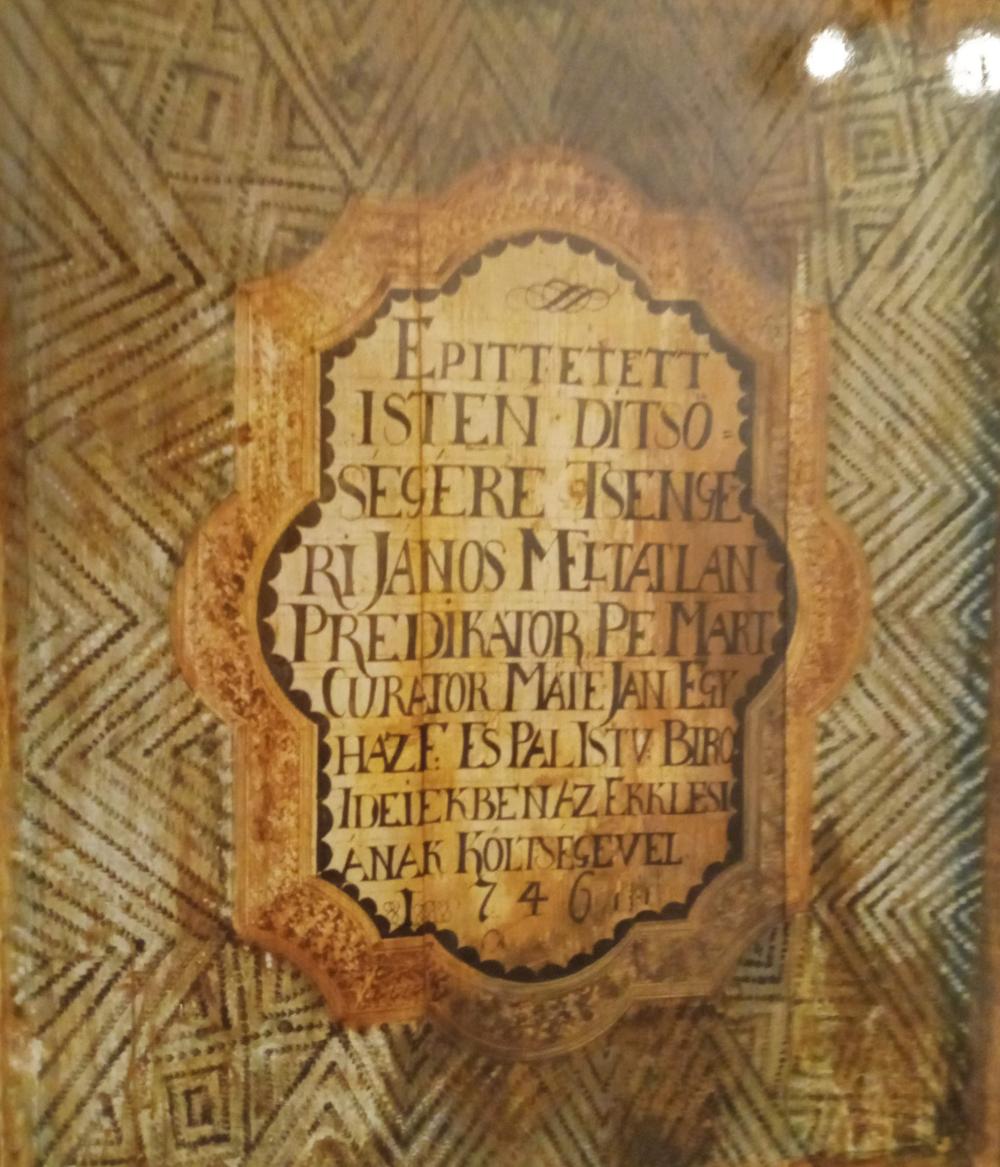 EPITTETETT
ISTEN DITSŐ=
SÉGÉRE TSENGE
RI JANOS MELTATLAN
PREDIKATOR, PE MART
CURATOR MATE JAN EGY
HAZ F. ES PAL ISTV. BIRO
IDEIEKBEN AZ EKKLESI
ÁNAK KÖLTSÉGEVEL
1746